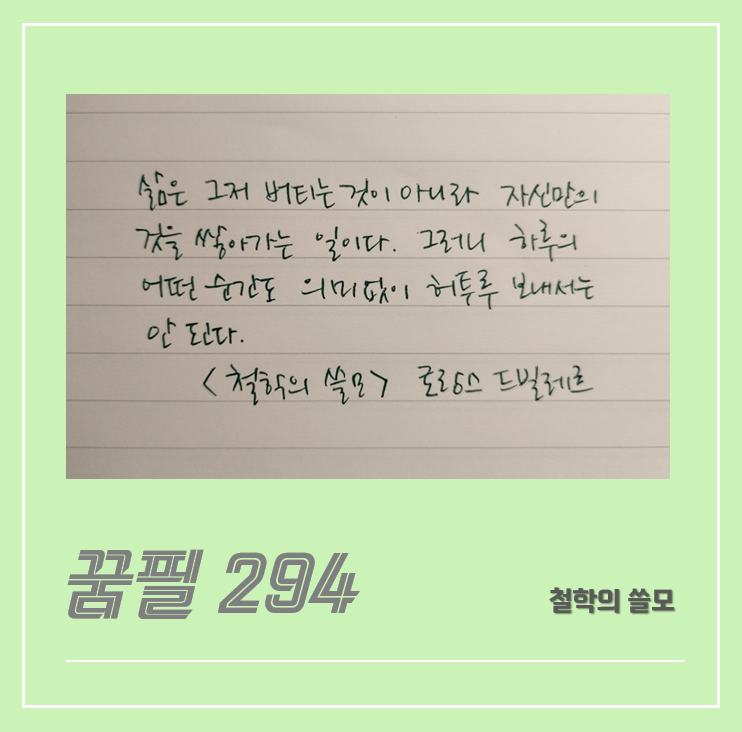 삶은 그저 버티는 것이 아니라 자신만의
것을 쌓아가는 일이다. 그러니 하루의
어떤 순간도 의미없이 허투루 보내서는
안 된다.
<철학의 쓸모> 로랑스 드빌레르
꿈필 294
철학의 쓸모